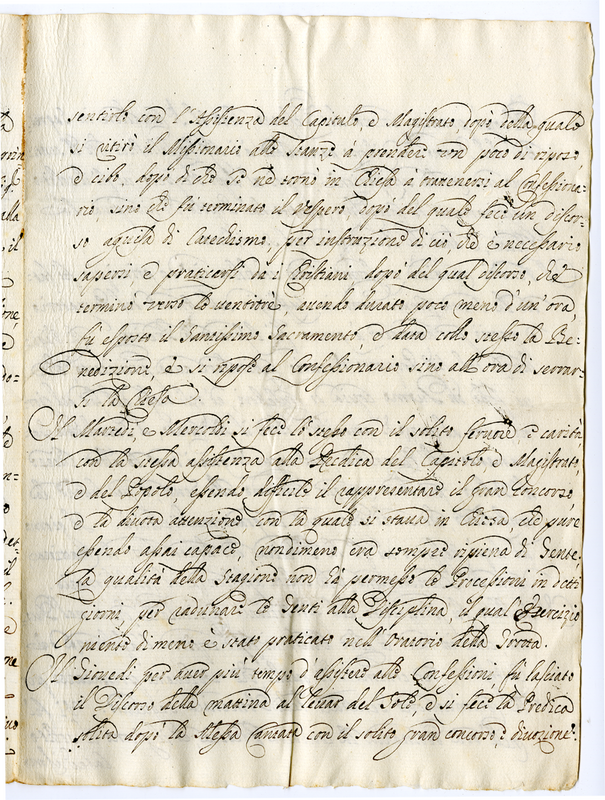 sentirlo con l'Assistenza del Capitolo, e Magistrato, dopò della quale
si ritirò il Missionario alle stanze à prender un poco di riposo
e cibo, dopò di che se ne tornò in Chiesa à trattenersi al Confessiona-
rio sino che fù terminato il Vespero, dopò del quale fece un discor-
so aguisa di Catechismo, per instruzione di ciò che è necessario
sapersi e praticarsi da i Cristiani dopò del qual discorso, che
terminò verso le ventitrè, avendo durato poco meno d'un'ora,
fù esposto il Santissimo Sacramento, e data collo stesso la Be-
nedizione, e si ripose al Confessionario sino all'ora di serrar-
si la Chiesa.
Il Martedì, e Mercoldì si fece lo stesso con il solito fervore, e carità
con la stessa assistenza alla Predica del Capitolo, e Magistrato,
e del Popolo, essendo difficile il rappresentare il gran Concorso,
e la divota attenzione con la quale si stava in Chiesa, che pure
essendo assai capace, nondimeno era sempre ripiena di Gente.
La qualità della Stagione non hà permesso le Processioni in detti
giorni, per radunare le Genti alla Disciplina, il qual Exercizio
niente di meno è stato praticato nell'Oratorio della
Il Giovedì per aver più tempo d'assistere alle Confessioni fù lasciato
il Discorso della mattina al levar del Sole, e si fece la Predica
solita dopò la Messa Cantata con il solito gran concorso, e divozione.